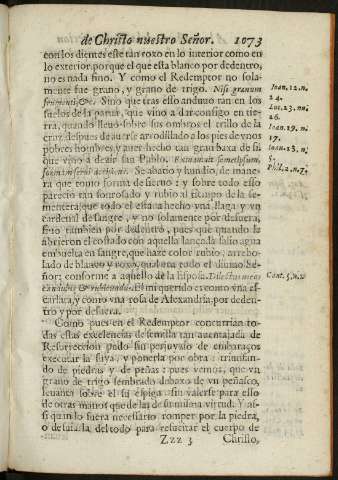 de Christo nuestro Señor. 1073
con los dientes este tan roxo en lo interior como en
lo exterior, porque el que esta blanco por dedentro,
no es nada fino. Y como el Redemptor no sola-
mente fue grano, y grano de trigo. Nisi granum
frumenti, &c. Sino que tras esso anduuo tan en los
suelos de la parua, que vino a dar consigo en tie-
rra, quando lleuò sobre sus ombros el trillo de la
cruz despues de auerse arrodillado a los pies de vnos
pobres hombres, y auer hecho tan gran baxa de si
que vino a dezir san Pablo. Exinaniuit semetipsum,
formam serui accipiens. Se abatio y hundio, de mane-
ra que tomo forma de sieruo: y sobre todo esso
parecio tan sonrosado y rubio al tiempo de la se-
mentera, que todo el estaua hecho vna llaga y vn
cardenal de sangre, y no solamente por defuera,
sino tambien por dedentro, pues que quando le
abrieron el costado con aquella lança, le salio agua
embuelta en sangre, que haze color rubio, arrebo-
lado de blanco y roxo, qual era todo el diuino Se-
ñor; conforme a aquello de la esposa. Dilectus meus
candidus & rubicundus. El mi querido es como vna es-
carlata, y como vna rosa de Alexandria por deden-
tro y por defuera.
Como pues en el Redemptor concurrian to-
das estas excelencias de semilla tan auentajada de
Resurreccion pudo sin perjuyzio de embaraços
executar la suya, y ponerla por obra: triunfan-
do de piedras y de peñas: pues vemos, que vn
grano de trigo sembrado debaxo de vn peñasco,
leuanta sobre el su espiga sin valerse para esso
de otras manos que de las de su misma virtud. Y as-
si quando fuera necessario romper por la piedra,
o desasirla del todo para resucitar el cuerpo de
Zzz 3 Christo,
Ioan. 12. n.
24.
Luc. 23. nu.
26.
Ioan. 19. n.
17.
Ioan. 13. n.
5.
Phil. 2. n. 7.
Cant. 5. n.